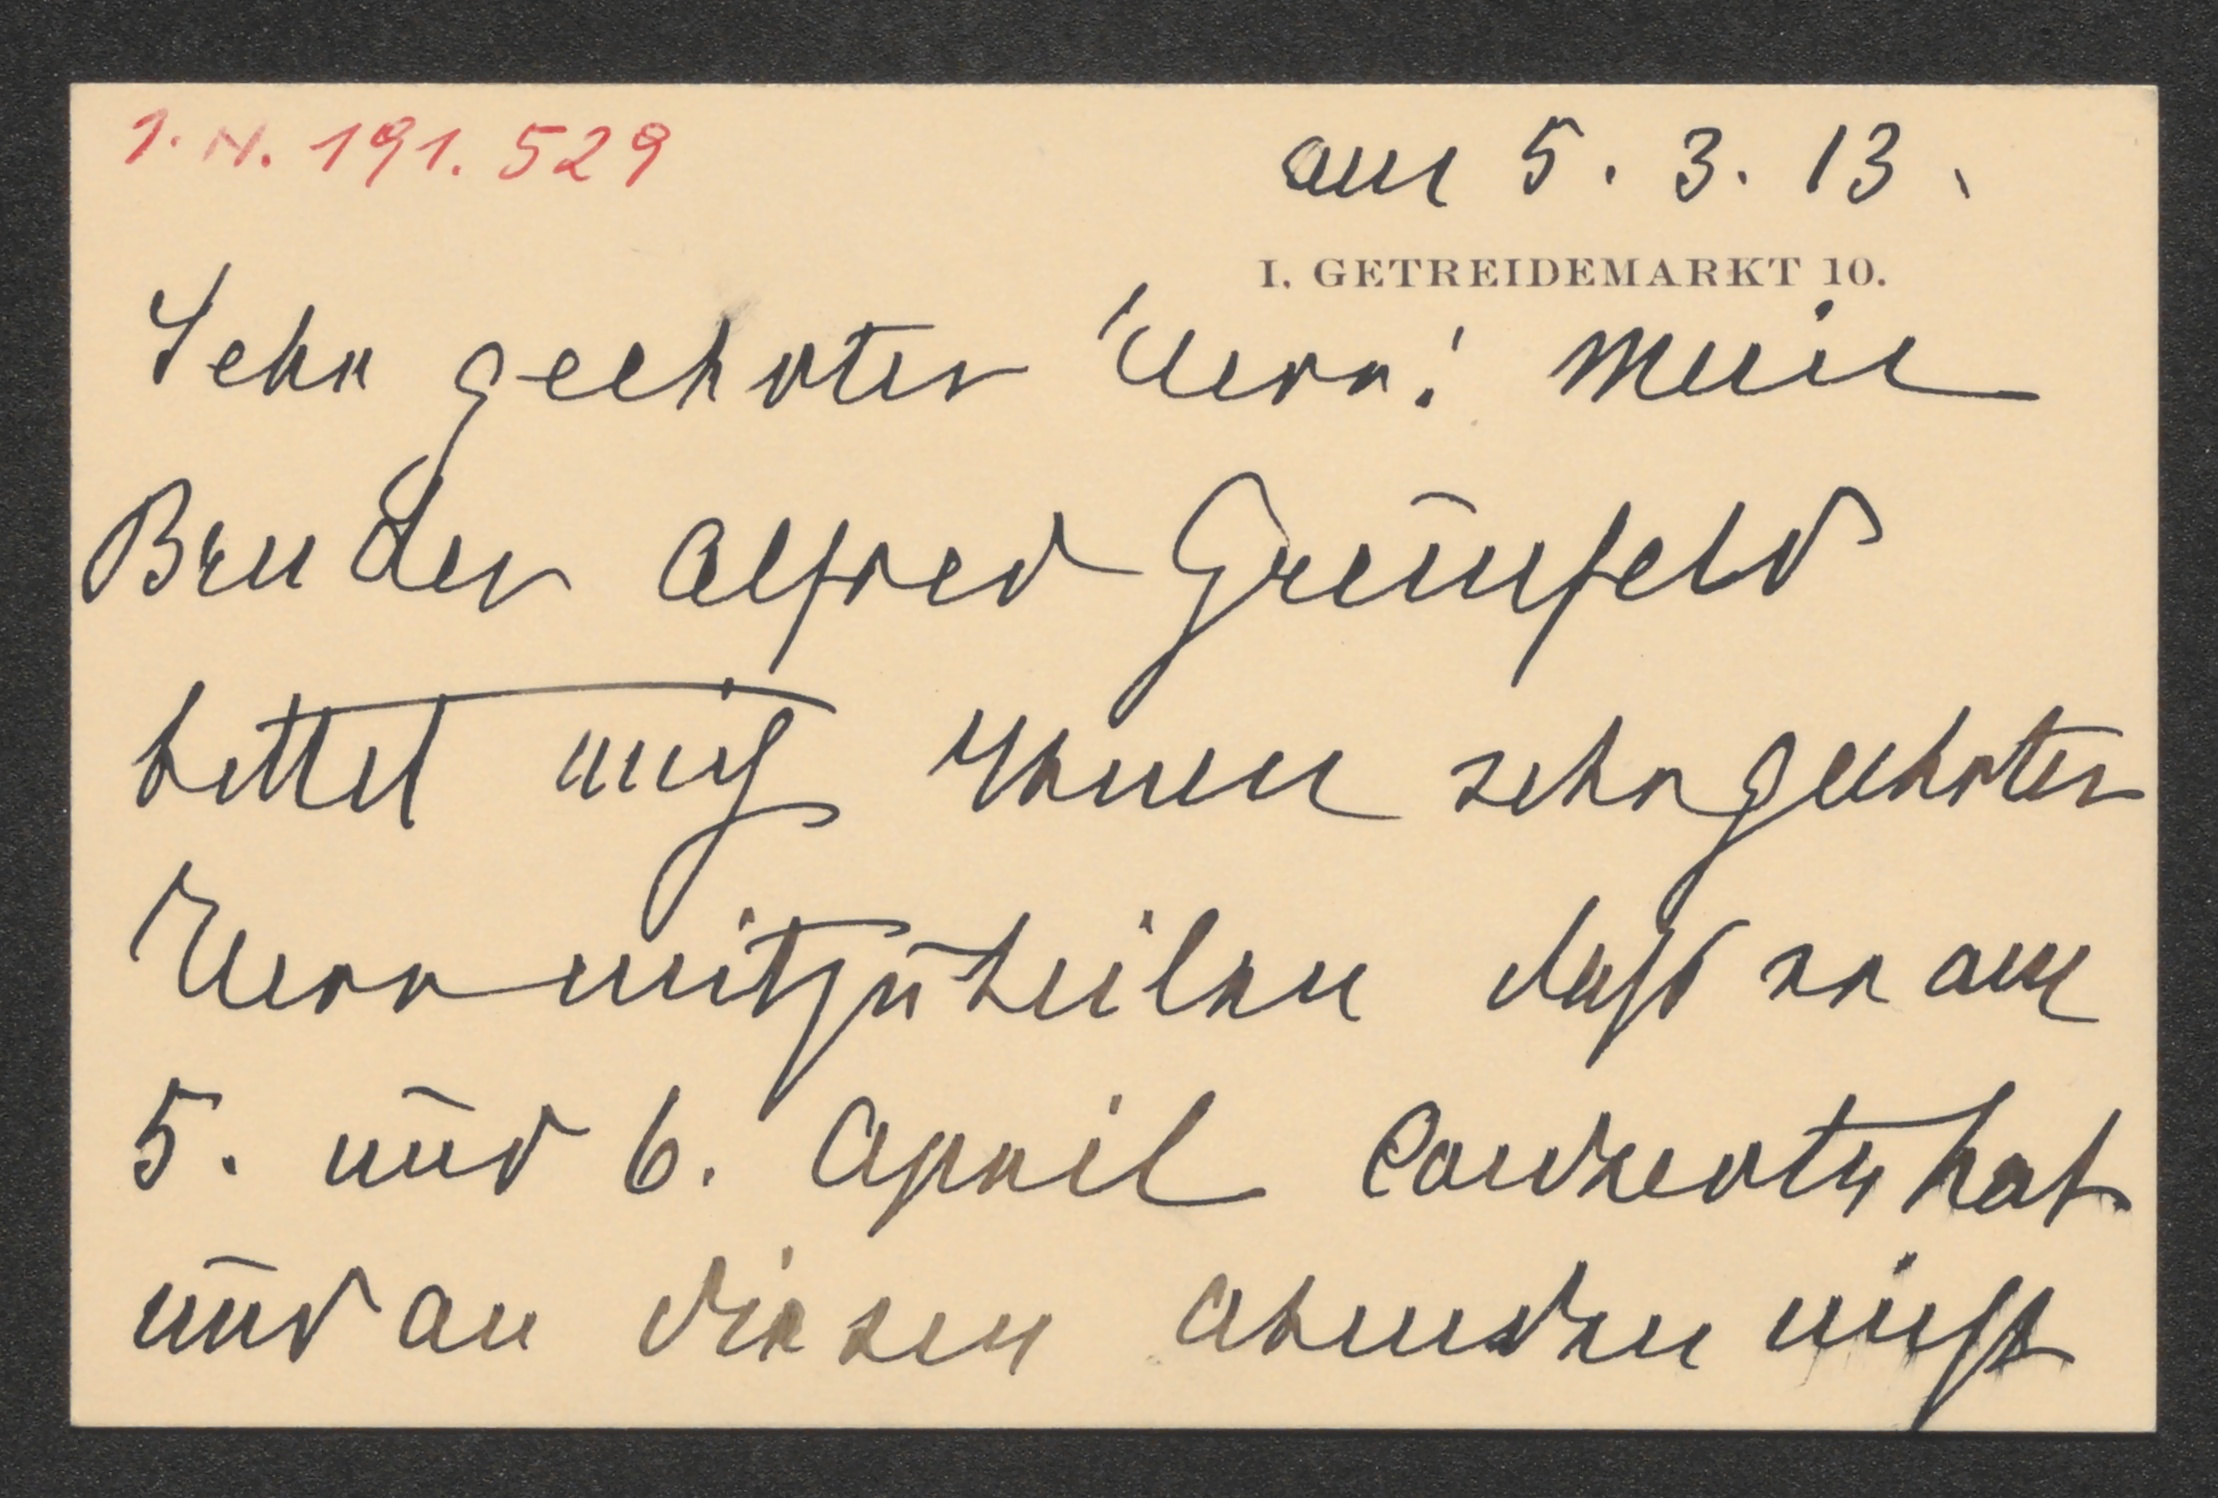 I. N. 191.529
am 5. 3. 13.
I. GETREIDEMARKT 10.
Sehr geehrter Herr! Mein
Bruder Alfred Grünfeld
bittet mich Ihnen sehr geehrter
Herr mitzutheilen daß er am
5. und 6. April Concerte hat
und an diesen Abenden nicht